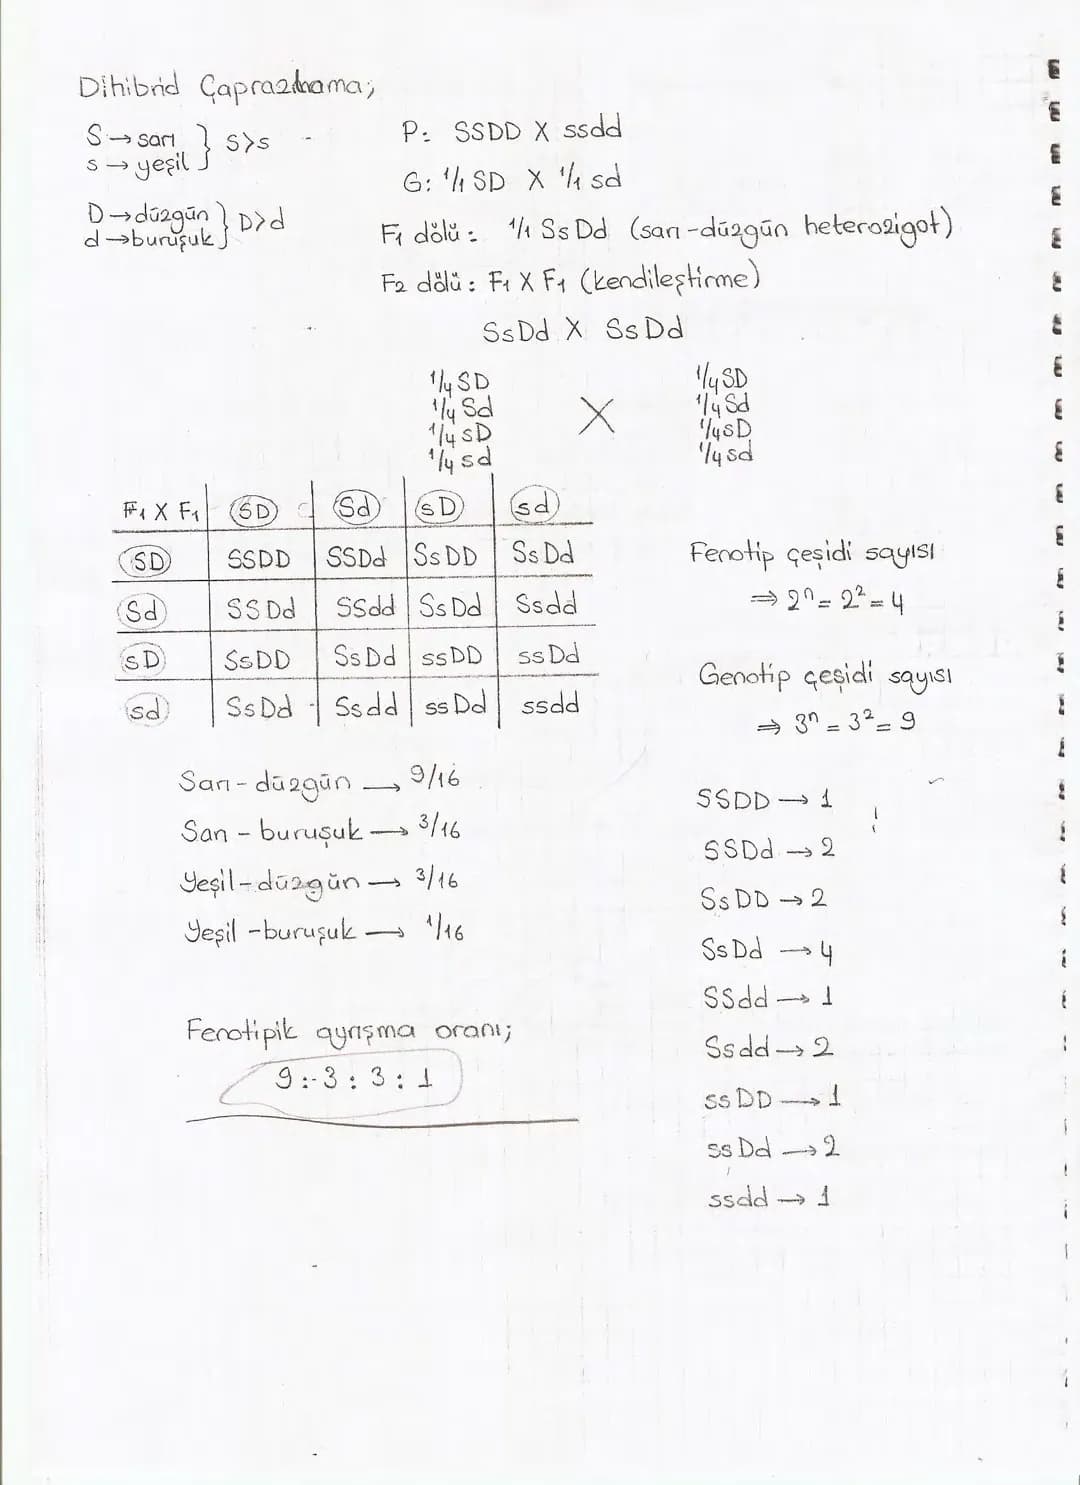 Dihibrid Çaprazlama;
S → sarı } S>s
s → yeşil
D → düzgün } D>d
d → buruşuk
P: SSDD X ssdd
G: 1/1 SD X 1/1 sd
F1 dölü: 1/1 SsDd (sarı-düzgün heterozigot)
F2 dölü: F1 X F1 (kendileştirme)
SsDd X SsDd
1/4 SD 1/4 SD
1/4 Sd X 1/4 Sd
1/4 sD 1/4 sD
1/4 sd 1/4 sd
F1 X F1 SD Sd sD sd
SD SSDD SSDd SsDD SsDd
Sd SSDd SSdd SsDd Ssdd
sD SsDD SsDd ssDD ssDd
sd SsDd Ssdd ssDd ssdd
Sarı-düzgün → 9/16
Sarı-buruşuk → 3/16
Yeşil-düzgün → 3/16
Yeşil-buruşuk → 1/16
Fenotipik ayrışma oranı;
9:3:3:1
Fenotip çeşidi sayısı
⇒ 2ⁿ = 2² = 4
Genotip çeşidi sayısı
⇒ 3ⁿ = 3² = 9
SSDD → 1
SSDd → 2
SsDD → 2
SsDd → 4
SSdd → 1
Ssdd → 2
ssDD → 1
ssDd → 2
ssdd → 1